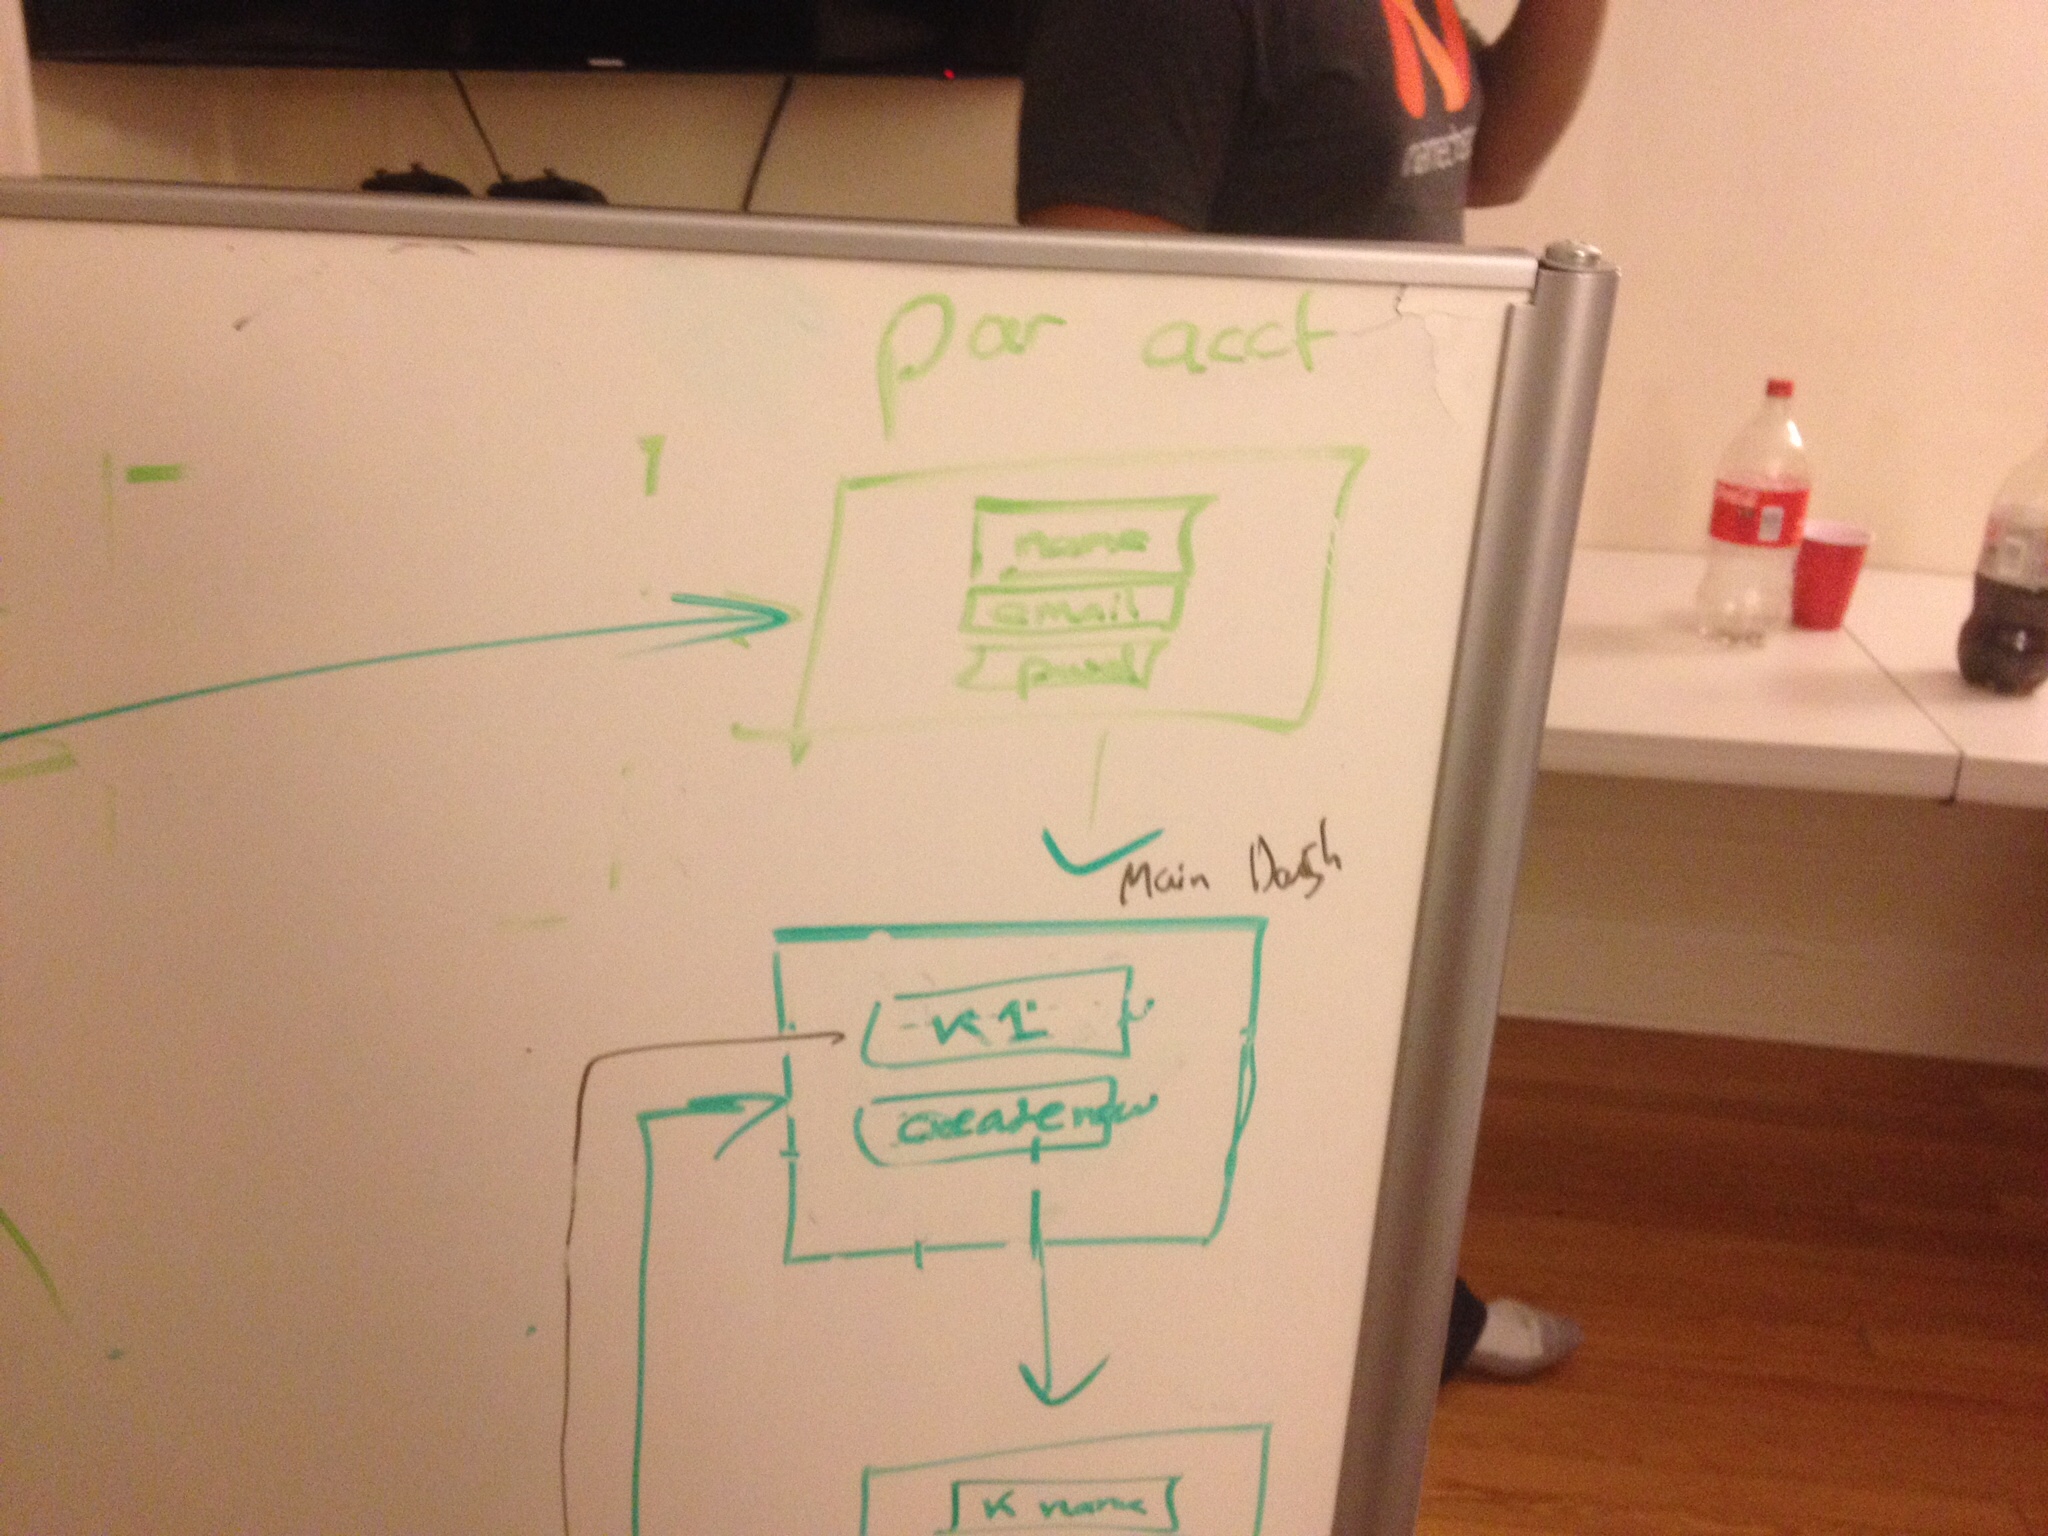 par acct
name
email
Main Dash
K1
create new
K name